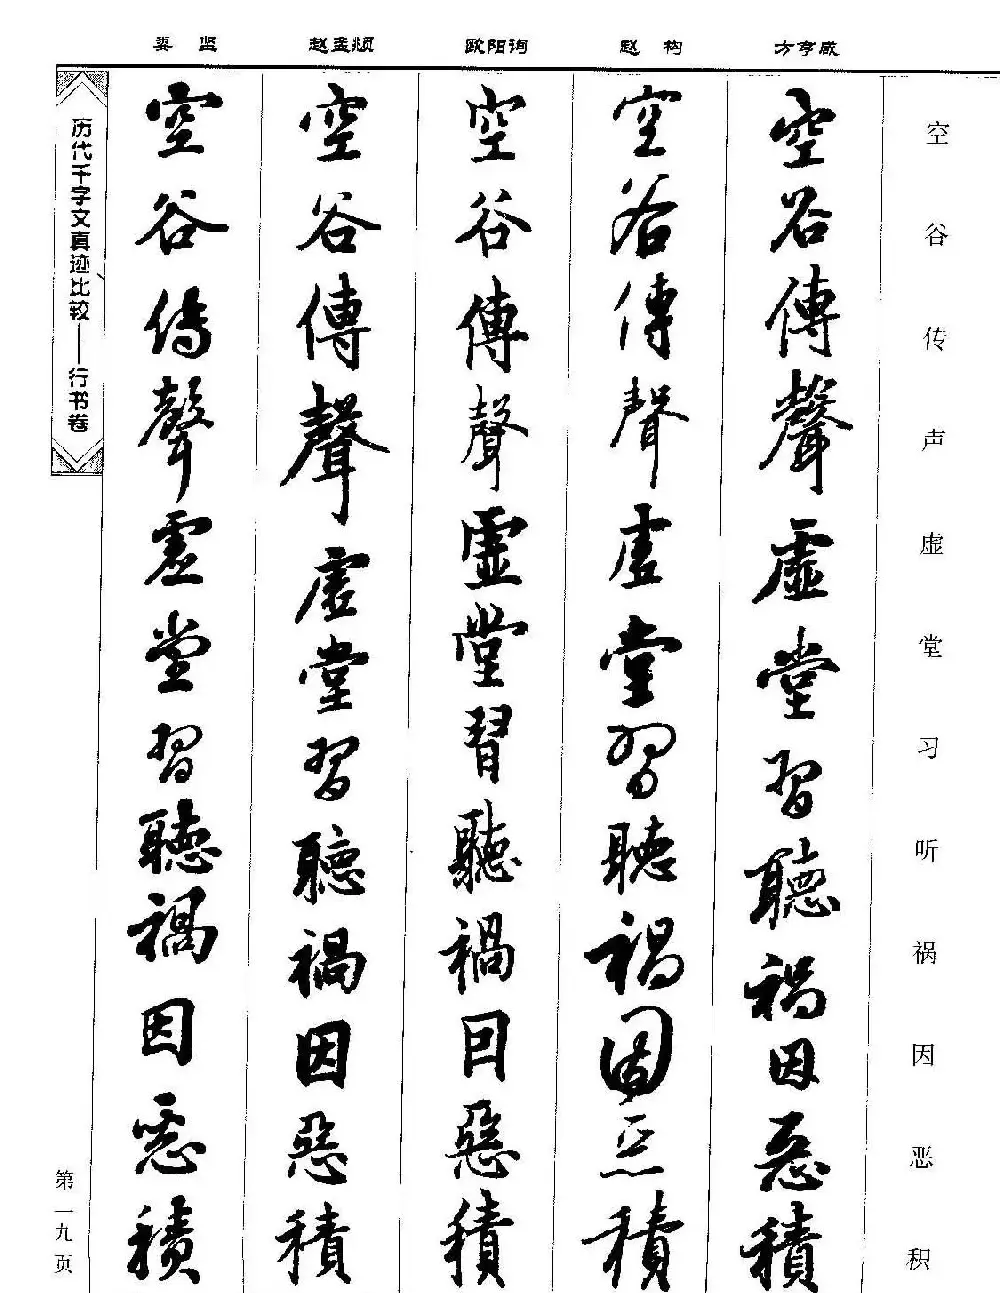 娄 坚
赵孟頫
欧阳询
赵 构
方亨咸
历代千字文真迹比较——行书卷
空谷传声虚堂习听祸因恶积
空谷傳聲虛堂習聽禍因惡積
空谷傳聲虛堂習聽禍因惡積
空谷傳聲虛堂習聽禍因惡積
空谷傳聲虛堂習聽禍因惡積
空谷傳聲虛堂習聽禍因惡積
第一九页